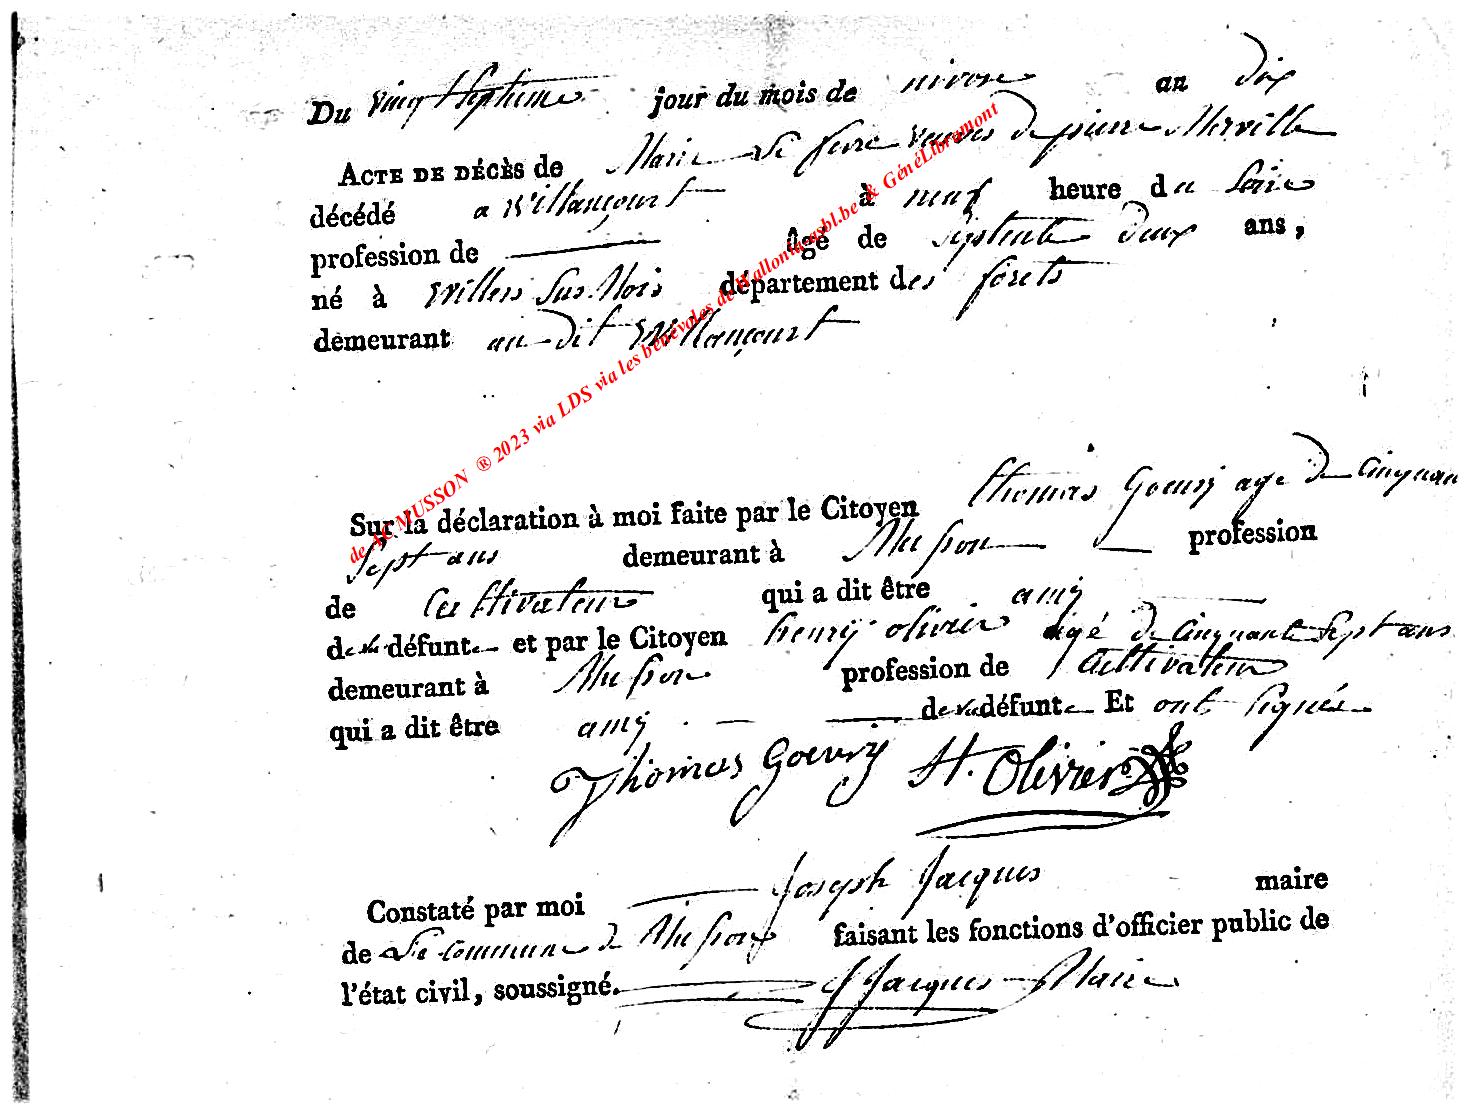 Du vingt Septieme jour du mois de nivose an dix
ACTE DE DÉCÈS de Marie Le fevre veuve de pierre Merville
décédé a Willancourt à neuf heure du Soire
profession de âge de Septente deux ans,
né à Willers Sur Mois département des forets
demeurant au dit Willançourt
Sur la déclaration à moi faite par le Citoyen thomas Goeury age de Cinquan
Sept ans demeurant à Musson profession
de Cultivateur qui a dit être amÿ
de la défunte et par le Citoyen henrÿ olivier aigé de Cinquante Sept ans
demeurant à Musson profession de Cultivateur
qui a dit être amÿ de la défunte Et ont Signés
Thomas Goeury H. Olivier
Constaté par moi Joseph Jacques maire
de La commune de Musson faisant les fonctions d'officier public de
l'état civil, soussigné. J Jacques Maire
de AC MUSSON ® 2023 via LDS via les bénévoles de Wallonia-asbl.be & GénéLibramont